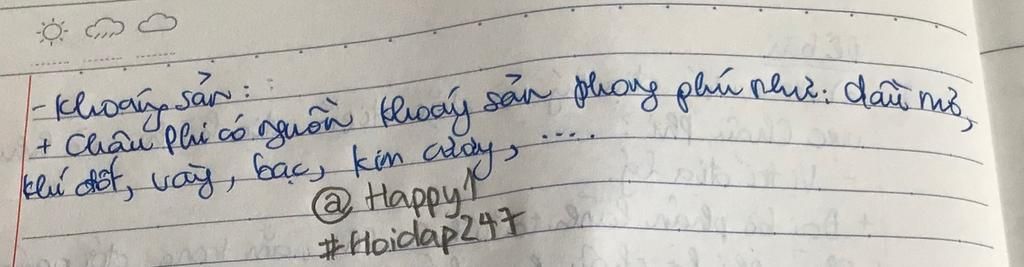 - Khoáng sản:
+ Châu Phi có nguồn khoáng sản phong phú như: dầu mỏ,
khí đốt, vàng, bạc, kim cương, ....
@ Happy1
#Hoidap247